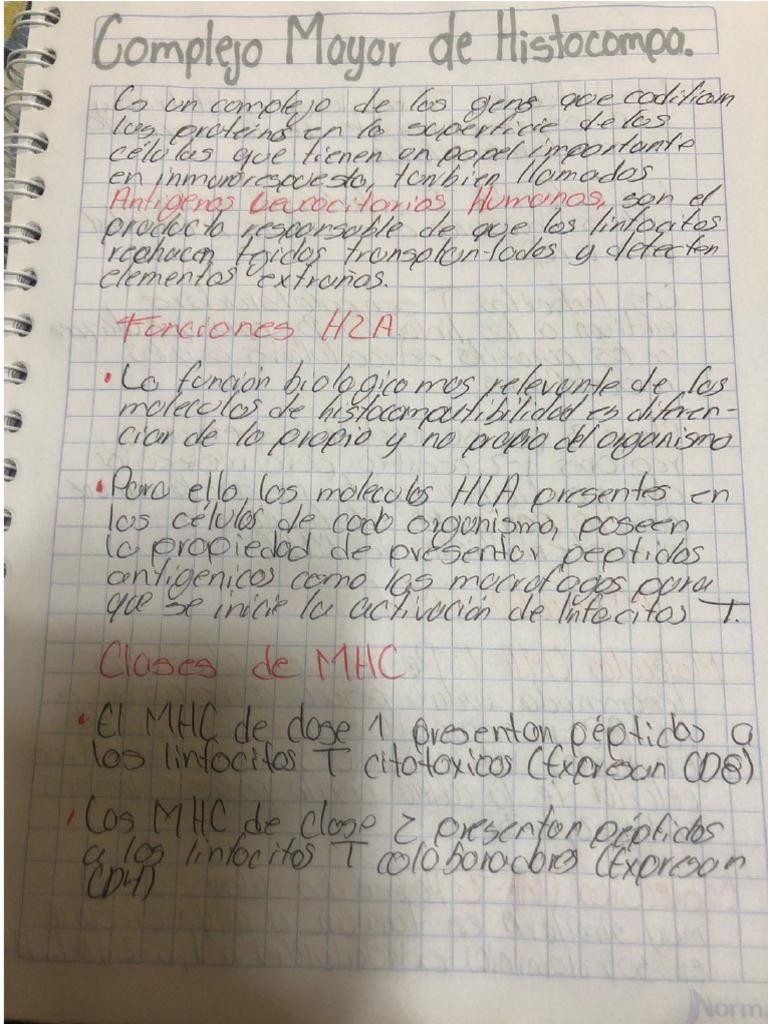 Complejo Mayor de Histocompa.
Es un complejo de los gens que codifican
las proteins en la superficie de los
células que tienen un papel importante
en inmunorespuesta, tanbien llamados
Antigenos Leucocitarios Humanos, son el
producto responsable de que los linfocitos
rechacen tejidos transplantados y detecten
elementos extraños.
Funciones HLA
• La función biologica mas relevante de las
moleculas de histocompatibilidad es diferen-
ciar de lo propio y no propio del organismo
• Para ello, las moleculas HLA presentes en
las células de cada organismo, poseen
la propiedad de presentar peptidos
antigenicos como los macrofagos para
que se inicie la activación de linfocitos T.
Clases de MHC
• El MHC de clase 1 presentan péptidos a
los linfocitos T citotoxicos (Expresan CD8)
• Los MHC de clase 2 presentan péptidos
a los linfocitos T colaboradores (Expresan
CD4)
Norma